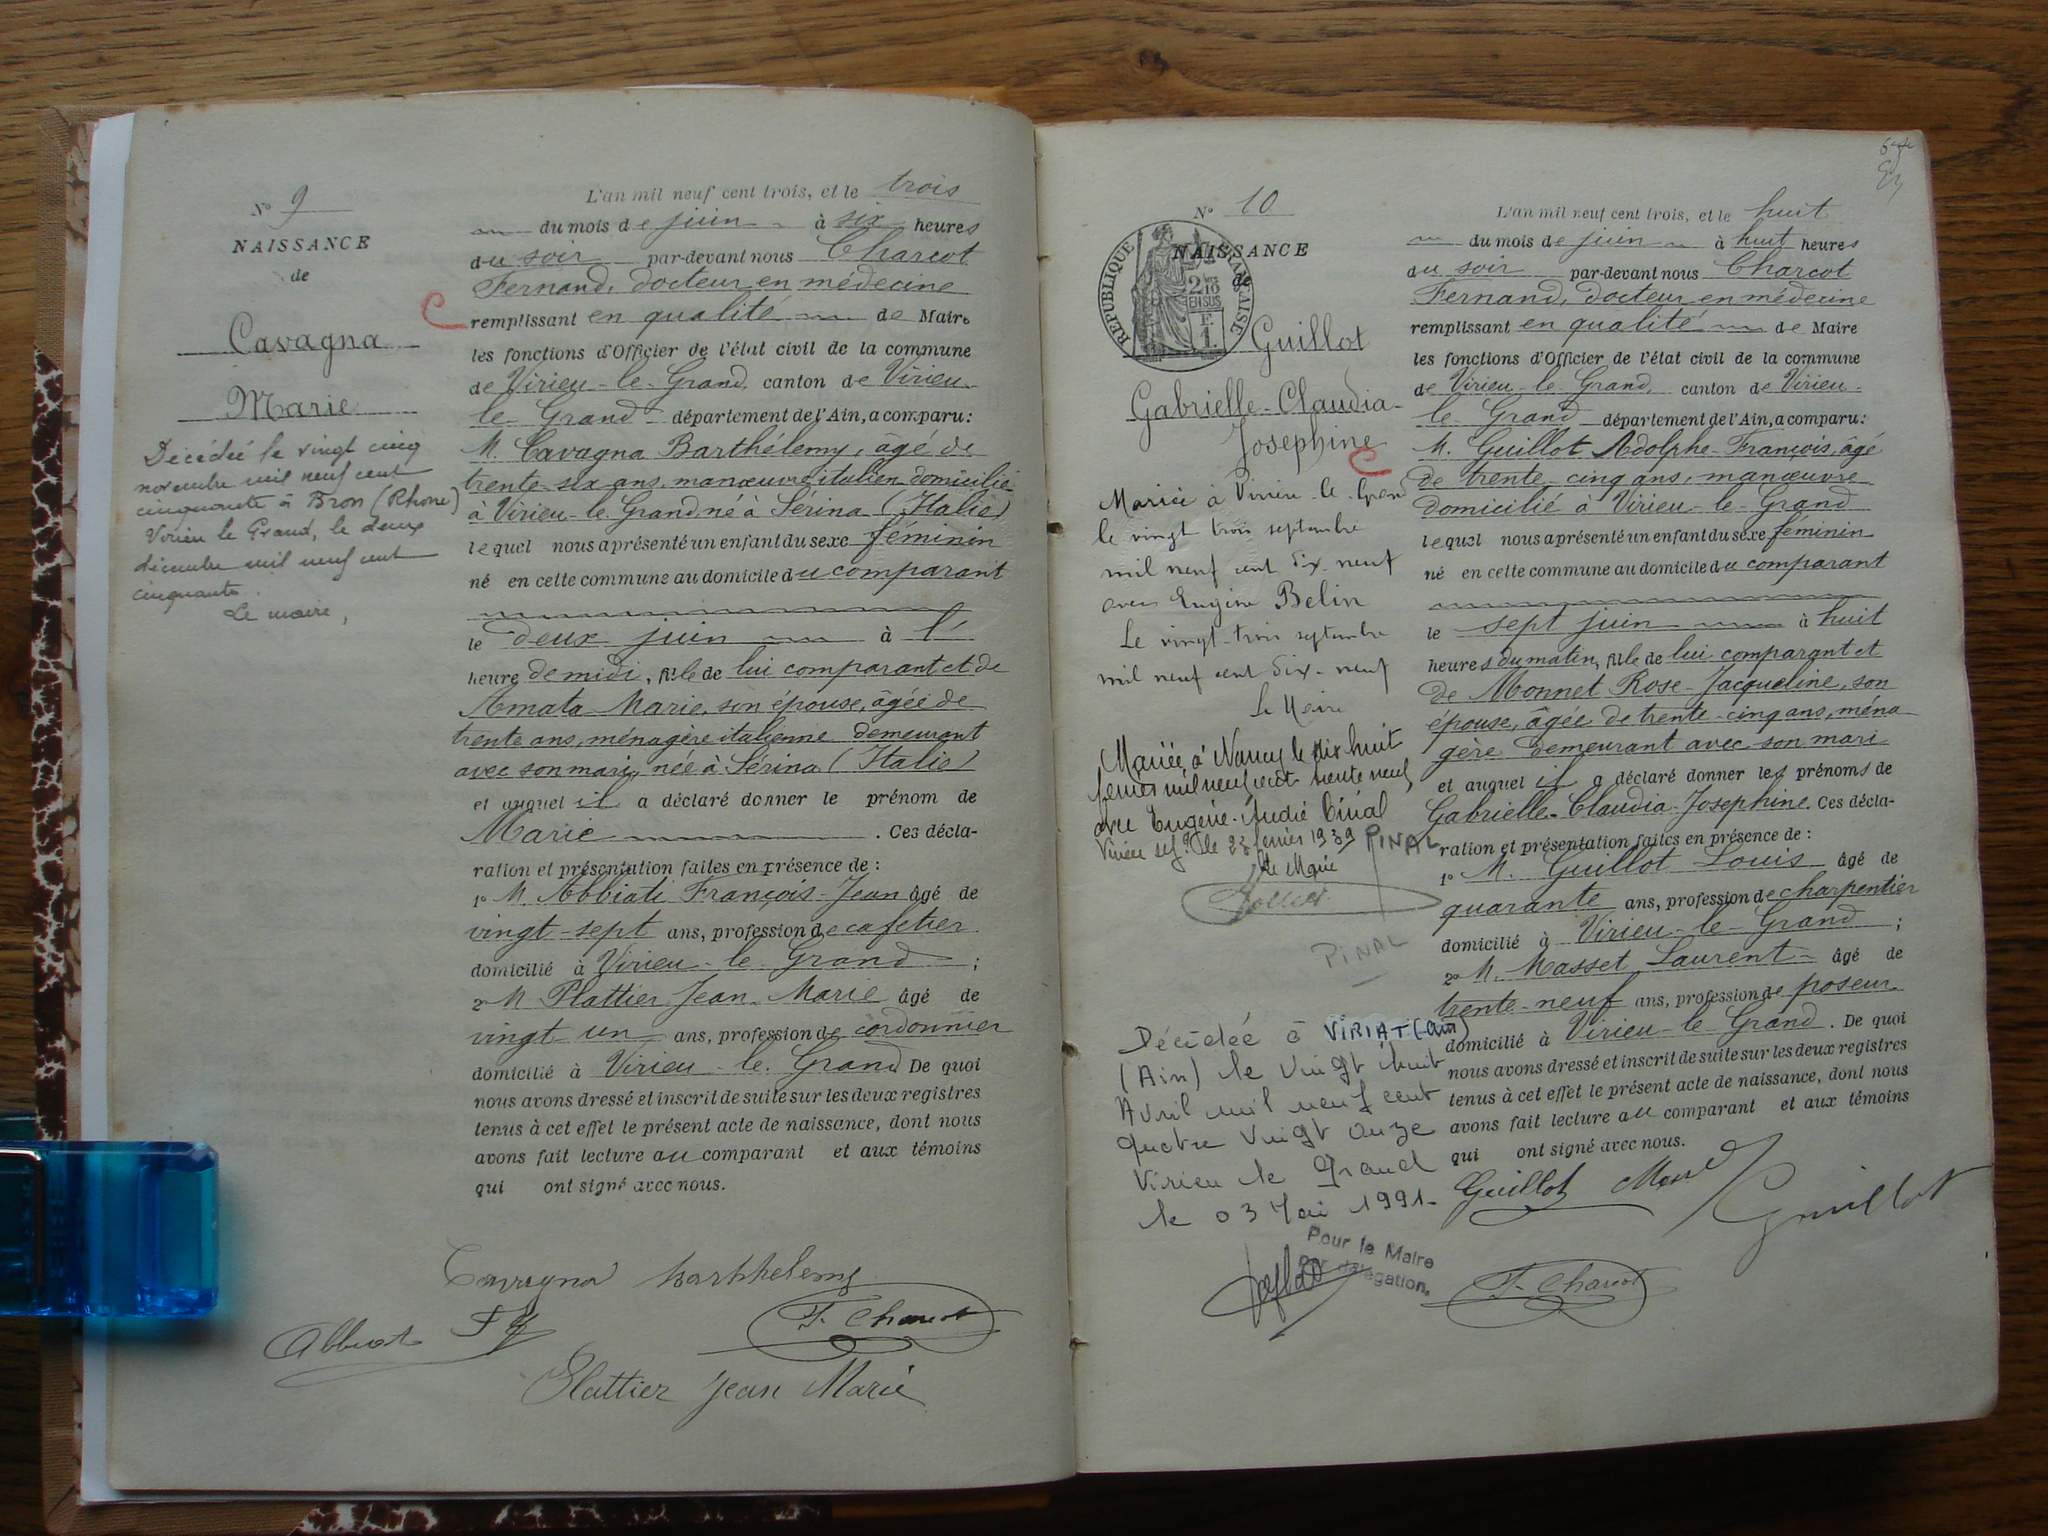 N° 9
NAISSANCE
de
Cavagna
Marie
Décédée le vingt cinq
novembre mil neuf cent
cinquante à Bron (Rhone)
Virieu le Grand, le deux
décembre mil neuf cent
cinquante.
Le maire,
L'an mil neuf cent trois, et le trois
du mois de juin à six heures
du soir par-devant nous Charcot
Fernand, docteur en médecine
remplissant en qualité de Maire
les fonctions d'Officier de l'état civil de la commune
de Virieu-le-Grand, canton de Virieu-
le-Grand département de l'Ain, a comparu:
M. Cavagna Barthélemy, âgé de
trente-six ans, manœuvre italien domicilié
à Virieu-le-Grand, né à Sérina (Italie)
lequel nous a présenté un enfant du sexe féminin
né en cette commune au domicile du comparant
le deux juin à l'
heure de midi, fille de lui comparant et de
Amata Marie, son épouse, âgée de
trente ans, ménagère italienne demeurant
avec son mari, née à Sérina (Italie)
et auquel il a déclaré donner le prénom de
Marie . Ces décla-
ration et présentation faites en présence de :
1° M. Abbiati François-Jean âgé de
vingt-sept ans, profession de cafetier
domicilié à Virieu-le-Grand ;
2° M. Plattier Jean-Marie âgé de
vingt un ans, profession de cordonnier
domicilié à Virieu-le-Grand De quoi
nous avons dressé et inscrit de suite sur les deux registres
tenus à cet effet le présent acte de naissance, dont nous
avons fait lecture au comparant et aux témoins
qui ont signé avec nous.
Cavagna Barthhelemy
F. Charcot
Plattier Jean Marie
N° 10
NAISSANCE
de
RÉPUBLIQUE FRANÇAISE
2/10
EN SUS
F.
1.
Guillot
Gabrielle-Claudia-
Josephine
Mariée à Virieu-le-Grand
le vingt trois septembre
mil neuf cent dix-neuf
avec Eugène Belin
Le vingt-trois septembre
mil neuf cent dix-neuf
Le Maire
Mariée à Nancy le dix huit
février mil neuf cent trente neuf
avec Eugène-André Pinal
Virieu le Gd le 23 février 1939 PINAL
Le Maire
PINAL
Décédée à VIRIAT (Ain)
(Ain) le vingt huit
Avril mil neuf cent
quatre vingt onze
Virieu le Grand
le 03 Mai 1991-
Pour le Maire
par délégation.
L'an mil neuf cent trois, et le huit
du mois de juin à huit heures
du soir par-devant nous Charcot
Fernand, docteur en médecine
remplissant en qualité de Maire
les fonctions d'Officier de l'état civil de la commune
de Virieu-le-Grand, canton de Virieu-
le-Grand département de l'Ain, a comparu:
M. Guillot Adolphe-François, âgé
de trente-cinq ans, manœuvre
domicilié à Virieu-le-Grand
lequel nous a présenté un enfant du sexe féminin
né en cette commune au domicile du comparant
le sept juin à huit
heures du matin, fille de lui comparant et
de Monnet Rose-Jacqueline, son
épouse, âgée de trente-cinq ans, ména
gère demeurant avec son mari
et auquel il a déclaré donner les prénoms de
Gabrielle-Claudia-Josephine. Ces décla-
ration et présentation faites en présence de :
1° M. Guillot Louis âgé de
quarante ans, profession de charpentier
domicilié à Virieu-le-Grand ;
2° M. Masset Laurent âgé de
trente-neuf ans, profession de poseur
domicilié à Virieu-le-Grand. De quoi
nous avons dressé et inscrit de suite sur les deux registres
tenus à cet effet le présent acte de naissance, dont nous
avons fait lecture au comparant et aux témoins
qui ont signé avec nous.
Guillot
Guillot
F. Charcot